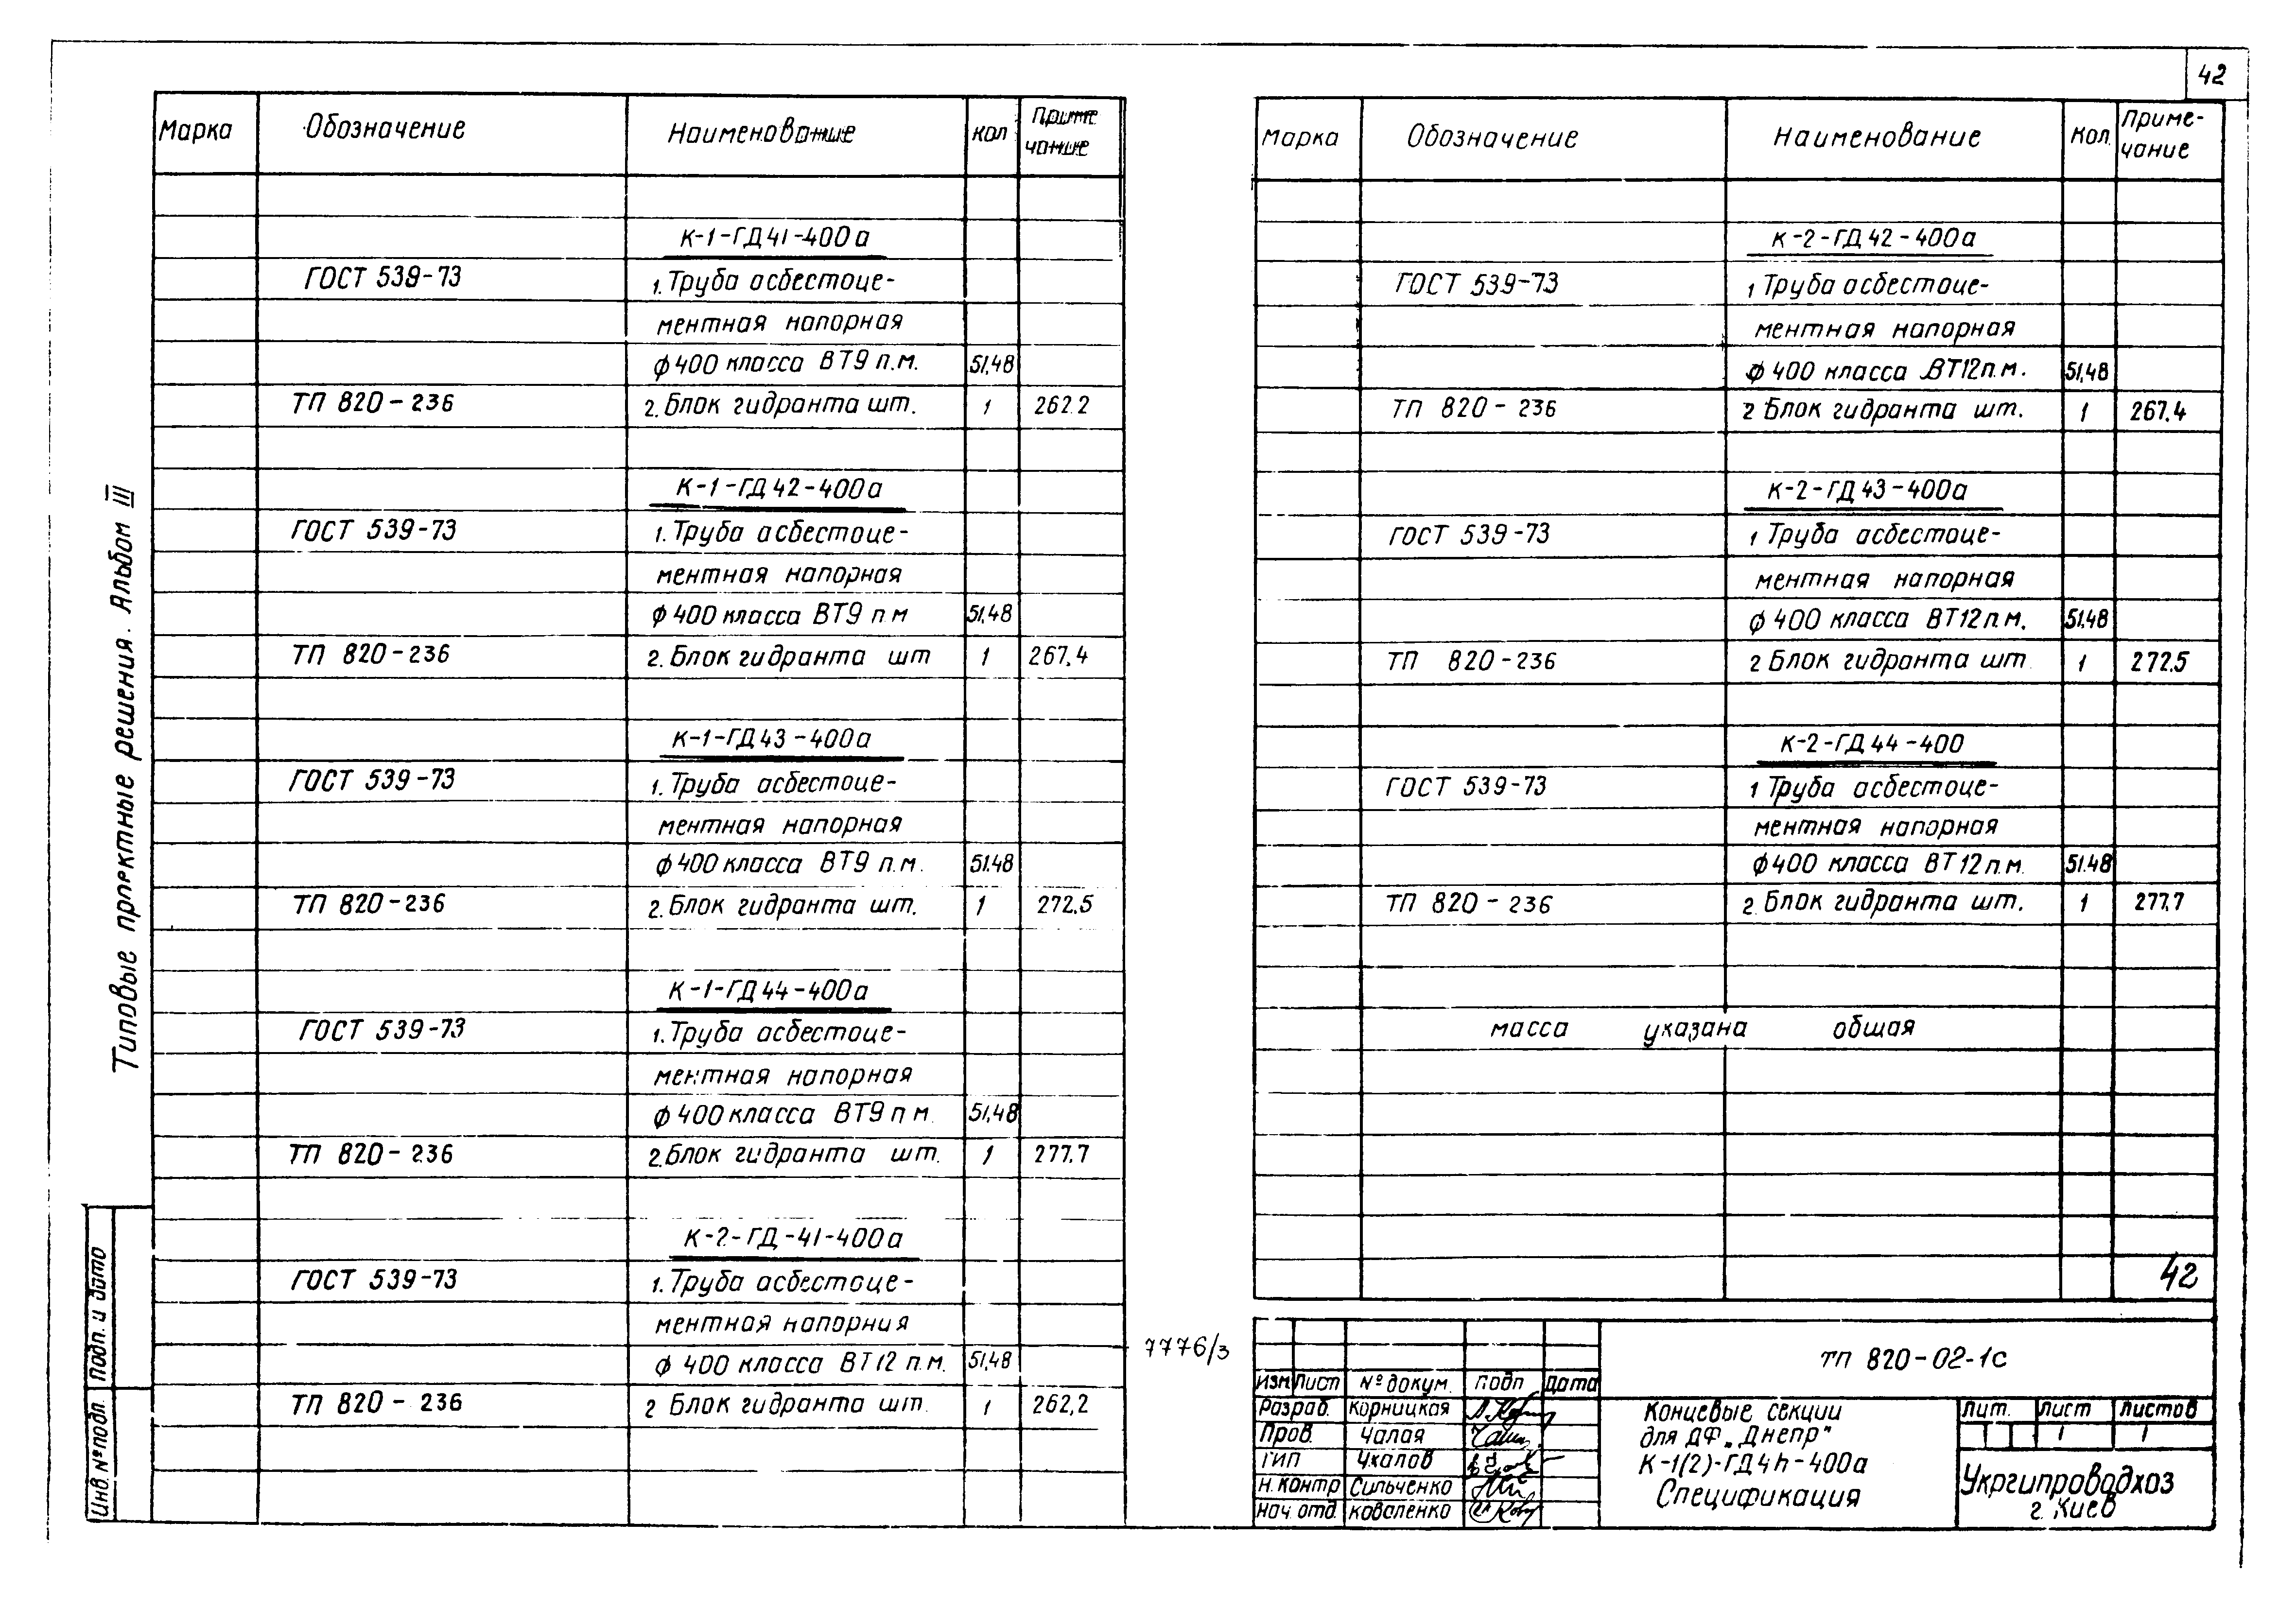 42
Марка Обозначение Наименование кол Приме
чание
К-1-ГД41-400а
ГОСТ 539-73 1. Труба асбестоце-
ментная напорная
ф400 класса ВТ9 п.м. 51,48
ТП 820-236 2. Блок гидранта шт. 1 262.2
К-1-ГД42-400а
ГОСТ 539-73 1. Труба асбестоце-
ментная напорная
ф400 класса ВТ9 п.м 51,48
ТП 820-236 2. Блок гидранта шт 1 267.4
К-1-ГД43-400а
ГОСТ 539-73 1. Труба асбестоце-
ментная напорная
ф400 класса ВТ9 п.м. 51.48
ТП 820-236 2. Блок гидранта шт. 1 272.5
К-1-ГД44-400а
ГОСТ 539-73 1. Труба асбестоце-
ментная напорная
ф400 класса ВТ9 п м. 51,48
ТП 820-236 2. Блок гидранта шт. 1 277.7
К-2-ГД-41-400а
ГОСТ 539-73 1. Труба асбестоце-
ментная напорния
ф 400 класса ВТ12 п.м. 51,48
ТП 820-236 2 Блок гидранта шт. 1 262,2
Марка Обозначение Наименование Кол. Приме-
чание
К-2-ГД42-400а
ГОСТ 539-73 1 Труба асбестоце-
ментная напорная
ф 400 класса ВТ12п.м. 51,48
ТП 820-236 2 Блок гидранта шт. 1 267.4
К-2-ГД43-400а
ГОСТ 539-73 1 Труба асбестоце-
ментная напорная
ф 400 класса ВТ12п.м. 51.48
ТП 820-236 2 Блок гидранта шт. 1 272.5
К-2-ГД44-400
ГОСТ 539-73 1 Труба асбестоце-
ментная напорная
ф400 класса ВТ12п.м. 51.48
ТП 820-236 2. Блок гидранта шт. 1 277.7
масса указана общая
42
Типовые проектные решения. Альбом III
Инв. № подл. Подп. и дата
7776/3
ТП 820-02-1с
Изм Лист № докум. Подп Дата
Разраб. Корницкая
Пров. Чалая
ГИП Чкалов
Н.контр Сильченко
Нач. отд. Коваленко
Концевые секции
для ДФ „Днепр"
К-1(2)-ГД4п-400а
Спецификация
Лит. Лист Листов
1 1
Укргипроводхоз
г. Киев